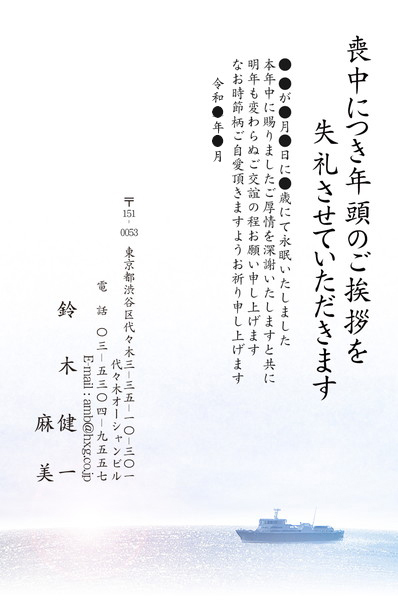 喪中につき年頭のご挨拶を
失礼させていただきます
●●が●月●日に●歳にて永眠いたしました
本年中に賜りましたご厚情を深謝いたしますと共に
明年も変わらぬご交誼の程お願い申し上げます
なお時節柄ご自愛頂きますようお祈り申し上げます
令和●年●月
〒151-0053
東京都渋谷区代々木三−三五−一〇−三〇一
代々木オーシャンビル
電話 〇三−五三〇四−九五五七
E-mail : amb@hxg.co.jp
鈴木健一
麻美